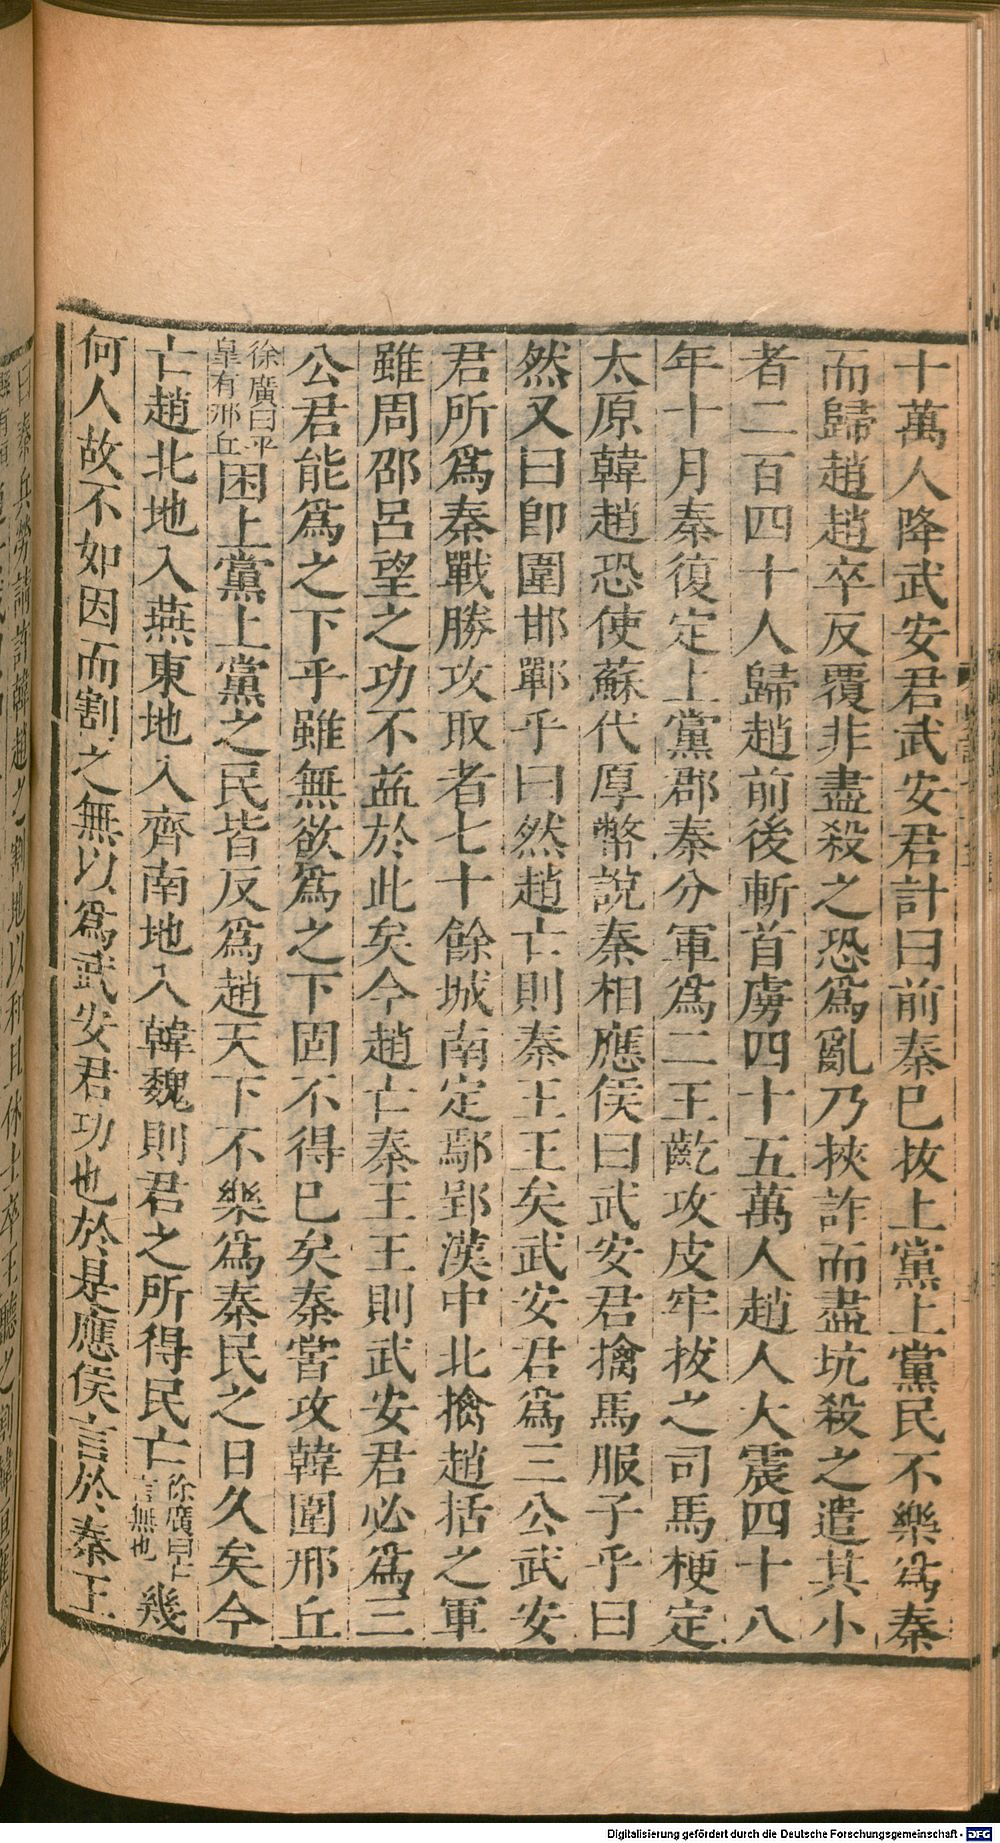 十萬人降武安君武安君計曰前秦已拔上黨上黨民不樂爲秦
而歸趙趙卒反覆非盡殺之恐爲亂乃挾詐而盡坑殺之遣其小
者二百四十人歸趙前後斬首虜四十五萬人趙人大震四十八
年十月秦復定上黨郡秦分軍爲二王齕攻皮牢拔之司馬梗定
太原韓趙恐使蘇代厚幣說秦相應侯曰武安君擒馬服子乎曰
然又曰卽圍邯鄲乎曰然趙亡則秦王王矣武安君爲三公武安
君所爲秦戰勝攻取者七十餘城南定鄢郢漢中北擒趙括之軍
雖周邵呂望之功不益於此矣今趙亡秦王王則武安君必爲三
公君能爲之下乎雖無欲爲之下固不得已矣秦嘗攻韓圍邢丘
徐廣曰平
皐有邢丘
困上黨上黨之民皆反爲趙天下不樂爲秦民之日久矣今
亡趙北地入燕東地入齊南地入韓魏則君之所得民亡
徐廣曰亡
言無也
幾
何人故不如因而割之無以爲武安君功也於是應侯言於秦王
曰秦兵勞請許韓趙之割地以和且休士卒王聽之割韓垣雍
Digitalisierung gefördert durch die Deutsche Forschungsgemeinschaft - DFG